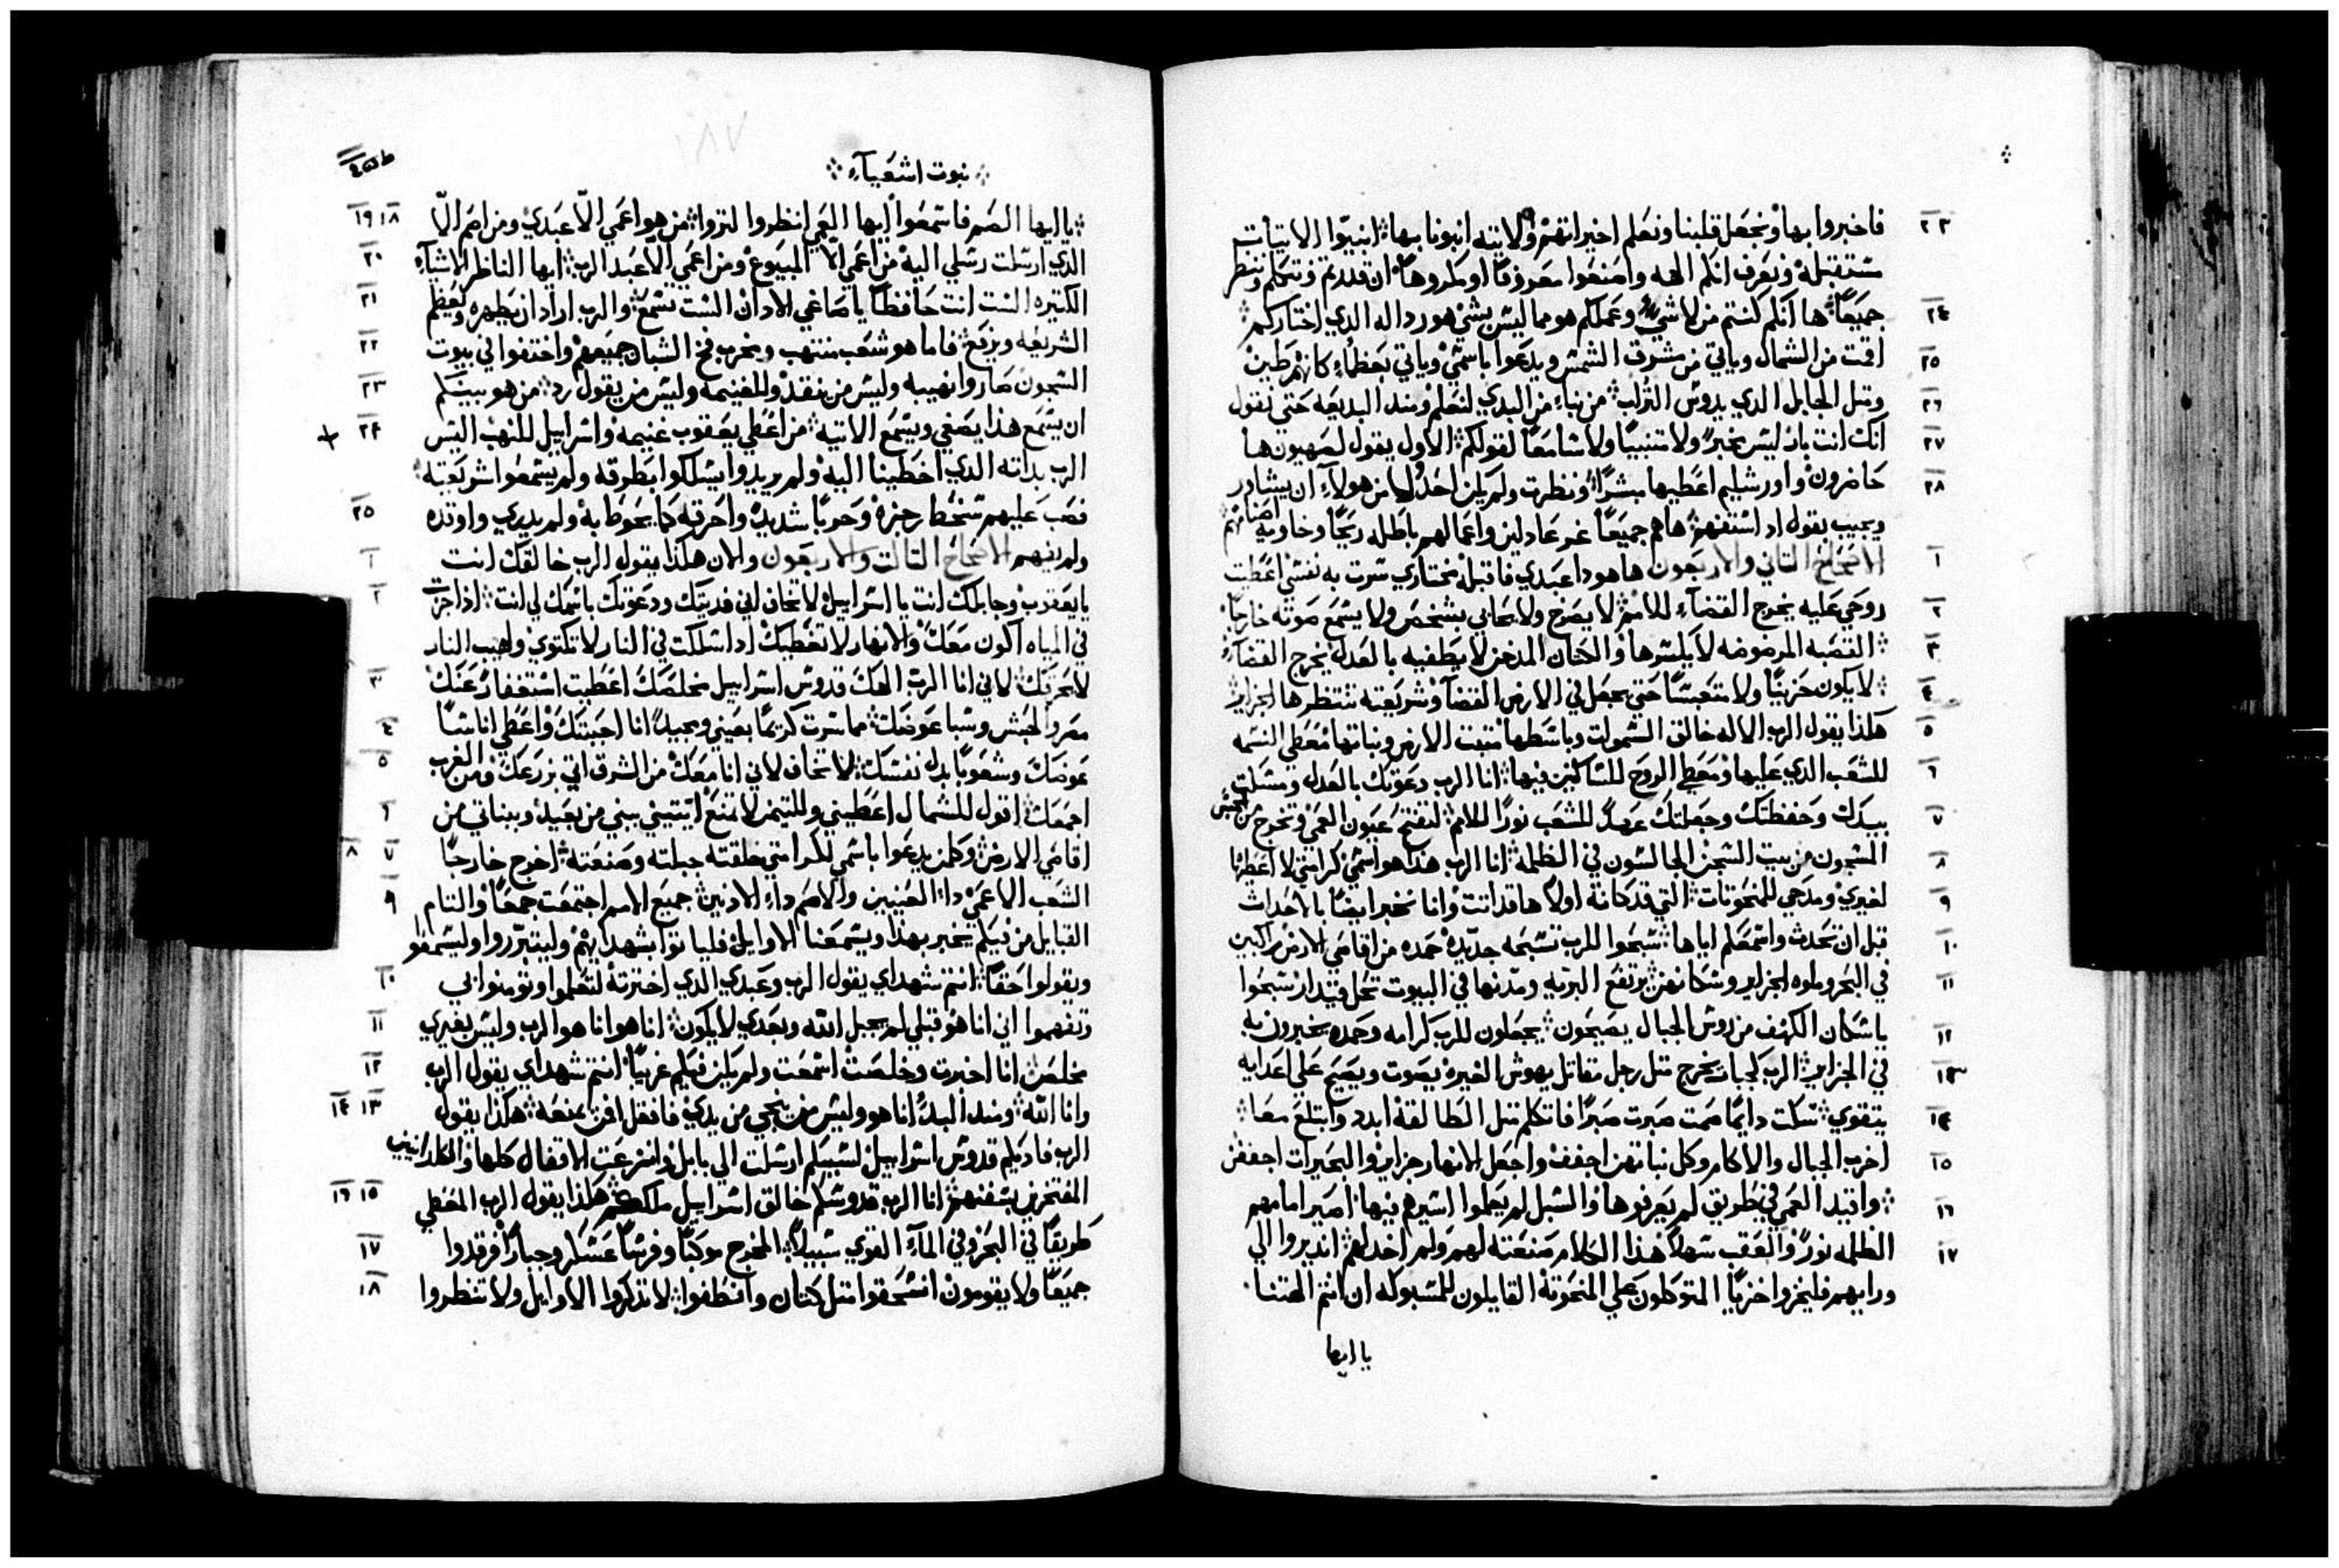 فاخبروا بها ونجعل قلبنا ونعلم اخيراتهم والاتيه انبونا بها انبيوا الاتيات ٢٣
مستقبلة ونعرف انكم الهه وامنعوا معروفا او مكروها ان قدرتم ونتكلم وننظر
جميعا ها انكم كنتم من لا شي وعملكم هو مما ليس بشي هو رداله الدي اختاركم ٢٤
اقمت من الشمال وياتي من مشرق الشمس ويدعوا باسمي وياتي بعظماء كانهم طين ٢٥
ومتل الجابل الدي يدوس التراب من نباء من البدي لنعلم ومند البديعه حتي نقول ٢٦
انك انت بار ليس مخبر ولا متنبيا ولا سامعا لقولكم الاول يقول لصهيون ها ٢٧
حاضرون واورشليم اعطيها مبشرا ونظرت ولم يكن احد ولا من هولاء ان يشاور ٢٨
ويجيب بقول اد استفهم هاهم جميعا غير عادلين واعمالهم باطله ريحا وخاويه اصنامهم
الاصحاح التاني والاربعون هاهودا عبدي فاقبله مختاري سرت به نفسي اعطيت ١
روحي عليه يخرج القضاء للامم لا يصرخ ولا يحابي بشخص ولا يسمع صوته خارجا ٢
القصبه المرضوضه لا يكسرها والكتان المدخن لا يطفيه بالعدل يخرج القضاء ٣
لا يكون حزينا ولا متعبسا حتي يجعل في الارض القضا وشريعته تنتظرها الجزاير ٤
هكدا يقول الرب الاله خالق السموات وباسطها متبت الارض ونباتها معطي النسمه ٥
للشعب الدي عليها ومعطي الروح للساكنين فيها انا الرب دعوتك بالعدل ومسكت ٦
بيدك وحفظتك وجعلتك عهدا للشعب نورا للامم لتفتح عيون العمي وتخرج من الحبس ٧
المسجون من بيت السجن الجالسون في الظلمه انا الرب هدا هو اسمي كرامتي لا اعطيها ٨
لغيري ومدحي للمنحوتات التي قد كانة اولا ها قد اتت وانا نخبر ايضا بالاحدات ٩
قبل ان تحدت واسمعكم اياها سبحوا للرب تسبحه جديده حمده من اقاصي الارض راكبين ١٠
في البحر وملوه الجزاير وسكانهن يرتفع البريه ومدنها في البيوت تحل قيدار سبحوا ١١
يا سكان الكهف من روس الجبال يصيحون يجعلون للرب كرامه وحمده يخبرون به ١٢
في الجزاير الرب كجبار يخرج متل رجل مقاتل يهوش الغيره يصوت ويصيح علي اعدايه ١٣
يتقوي سكت دايما صمت صبرت صبرا فاتكلم متل الطالقة ابدد وابتلع معا ١٤
اخرب الجبال والاكام وكل نباتهن اجفف واجعل الانهار جزاير والبحيرات اجففن ١٥
واقيد العمي في طريق لم يعرفوها والسبل لم يعملوا اسيرهم فيها اصير امامهم ١٦
الظلمه نورا والعقب سهلا هدا الكلام صنعته لهم ولم اخدلهم اندبروا الي ١٧
ورايهم فليخزوا خزيا المتوكلون علي المنحوتة القايلون للمسبوكه ان انتم الهتنا
يا ايها
نبوت اشعياء
يا ايها الصم فاسمعوا ايها العمي انظروا لتروا من هو اعمي الا عبدي ومن اصم الا ١٨ ١٩
الدي ارسلت رسلي اليه من اعمي الا المبيوع ومن اعمي الا عبد الرب ايها الناظر الاشياء ٢٠
الكتيره الست انت حافظا يا صاغي الادان الست تسمع والرب اراد ان يطهره ويعظم ٢١
الشريعه ويرفع فاما هو شعب منتهب ومخرب فخ الشبان جميعهم واختفوا في بيوت ٢٢
السجون صاروا نهيبه وليس من ينقد وللغنيمه وليس من يقول رد من هو بينكم ٢٣
ان يسمع هدا يصغي ويسمع الاتيه من اعطي يعقوب غنيمه واسراييل للنهب اليس ٢٤
الرب بداته الدي اخطينا اليه ولم يريدوا يسلكوا بطرقه ولم يسمعوا شريعته
فصب عليهم سخط رجزه وحربا شديد واحرقه كما يحوط به ولم يدري واوقده ٢٥
ولم يفهم الاصحاح التالت والاربعون والان هكدا يقول الرب خالقك انت ١
يا يعقوب وجابلك انت يا اسراييل لا تخاف اني فديتك ودعوتك باسمك لي انت ادا جزت ٢
في المياه اكون معك والانهار لا تغطيك اد اسلكت في النار لا تكتوي ولهيب النار
لا يحرقك لاني انا الرب الهك قدوس اسراييل مخلصك اعطيت استغفار عنك ٣
مصر والحبش وسبا عوضك مما سرت كريما بعيني ومجيدا انا احببتك واعطي اناسا ٤
عوضك وشعوبا بدل نفسك لا تخاف لاني انا معك من الشرق اتي بزرعك ومن الغرب ٥
اجمعك اقول للشمال اعطيني ولليتمن لا تمنع ايتيني ببني من بعيد وبناتي من ٦
اقاصي الارض وكلمن يدعوا باسمي لكرامتي خلقته جبلته وصنعته اخرج خارجا ٧ ٨
الشعب الاعمي دا العينين والاصم دا الادنين جميع الامم اجتمعت جمعا والتام ٩
القبايل من فيكم يخبر بهدا ويسمعنا الاوايل فلياتوا بشهداهم وليتبرروا وليسمعوا
ويقولوا حقا انتم شهداي يقول الرب وعبدي الدي اخترته لتعلموا وتومنوا بي ١٠
وتفهموا اني انا هو قبلي لم يجبل الله وبعدي لا يكون انا هو انا هو الرب وليس بغيري ١١
مخلص انا اخبرت وخلصت اسمعت ولم يكن فيكم غريبا انتم شهداي يقول الرب ١٢
وانا الله ومند البدء انا هو وليس من ينجي من يدي فافعل فمن يمنعه هكدا يقول ١٣ ١٤
الرب فاديكم قدوس اسراييل لسببكم ارسلت الي بابل وانتزعت الاقفال كلها والكلدانيين
المفتخرين بسفنهم انا الرب قدوسكم خالق اسراييل ملككم هكدا يقول الرب المعطي ١٥ ١٦
طريقا في البحر وفي الماء القوي سبيلا المخرج موكبا وفرسا عسكر وجبارا فرقدوا ١٧
جميعا ولا يقومون انسحقوا متل كتان وانطفوا لا تدكروا الاوايل ولا تنظروا ١٨